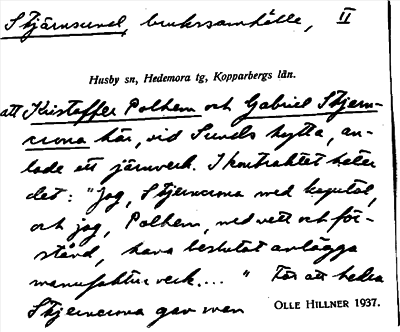 Stjärnsund, brukssamhälle, II
Husby sn, Hedemora tg, Kopparbergs län.
att Kristoffer Polhem och Gabriel Stjern-
crona här, vid Sunds hytta, an-
lade ett järnverk. I kontraktet heter
det: "Jag, Stjerncrona med kapital,
och jag, Polhem, med vett och för-
stånd, hava beslutat anlägga
manufakturverk...." För att hedra
Stjerncrona gav man
OLLE HILLNER 1937.